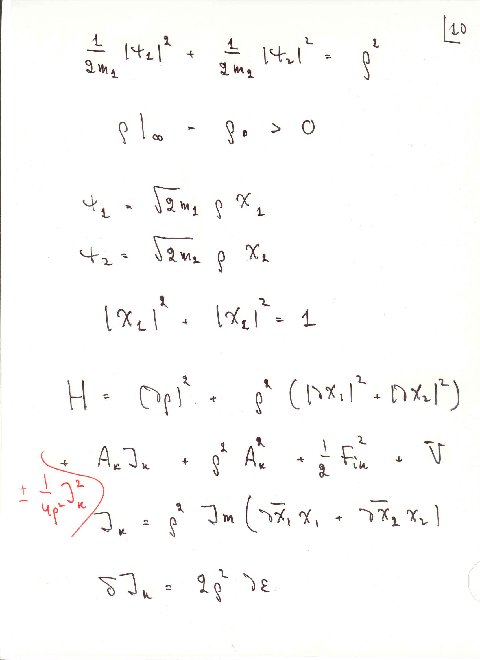 10
1/2m₁ |ψ₁|² + 1/2m₂ |ψ₂|² = ρ²
ρ|∞ = ρ₀ > 0
ψ₁ = √2m₁ ρ χ₁
ψ₂ = √2m₂ ρ χ₂
|χ₁|² + |χ₂|² = 1
H = (∂ρ)² + ρ² (|∂χ₁|² + |∂χ₂|²)
+ AₖJₖ + ρ² Aₖ² + 1/2 Fᵢₖ² + V
± 1/4ρ² Jₖ²
Jₖ = ρ² Im (∂χ̄₁ χ₁ + ∂χ̄₂ χ₂)
δJₖ = 2ρ² ∂ε